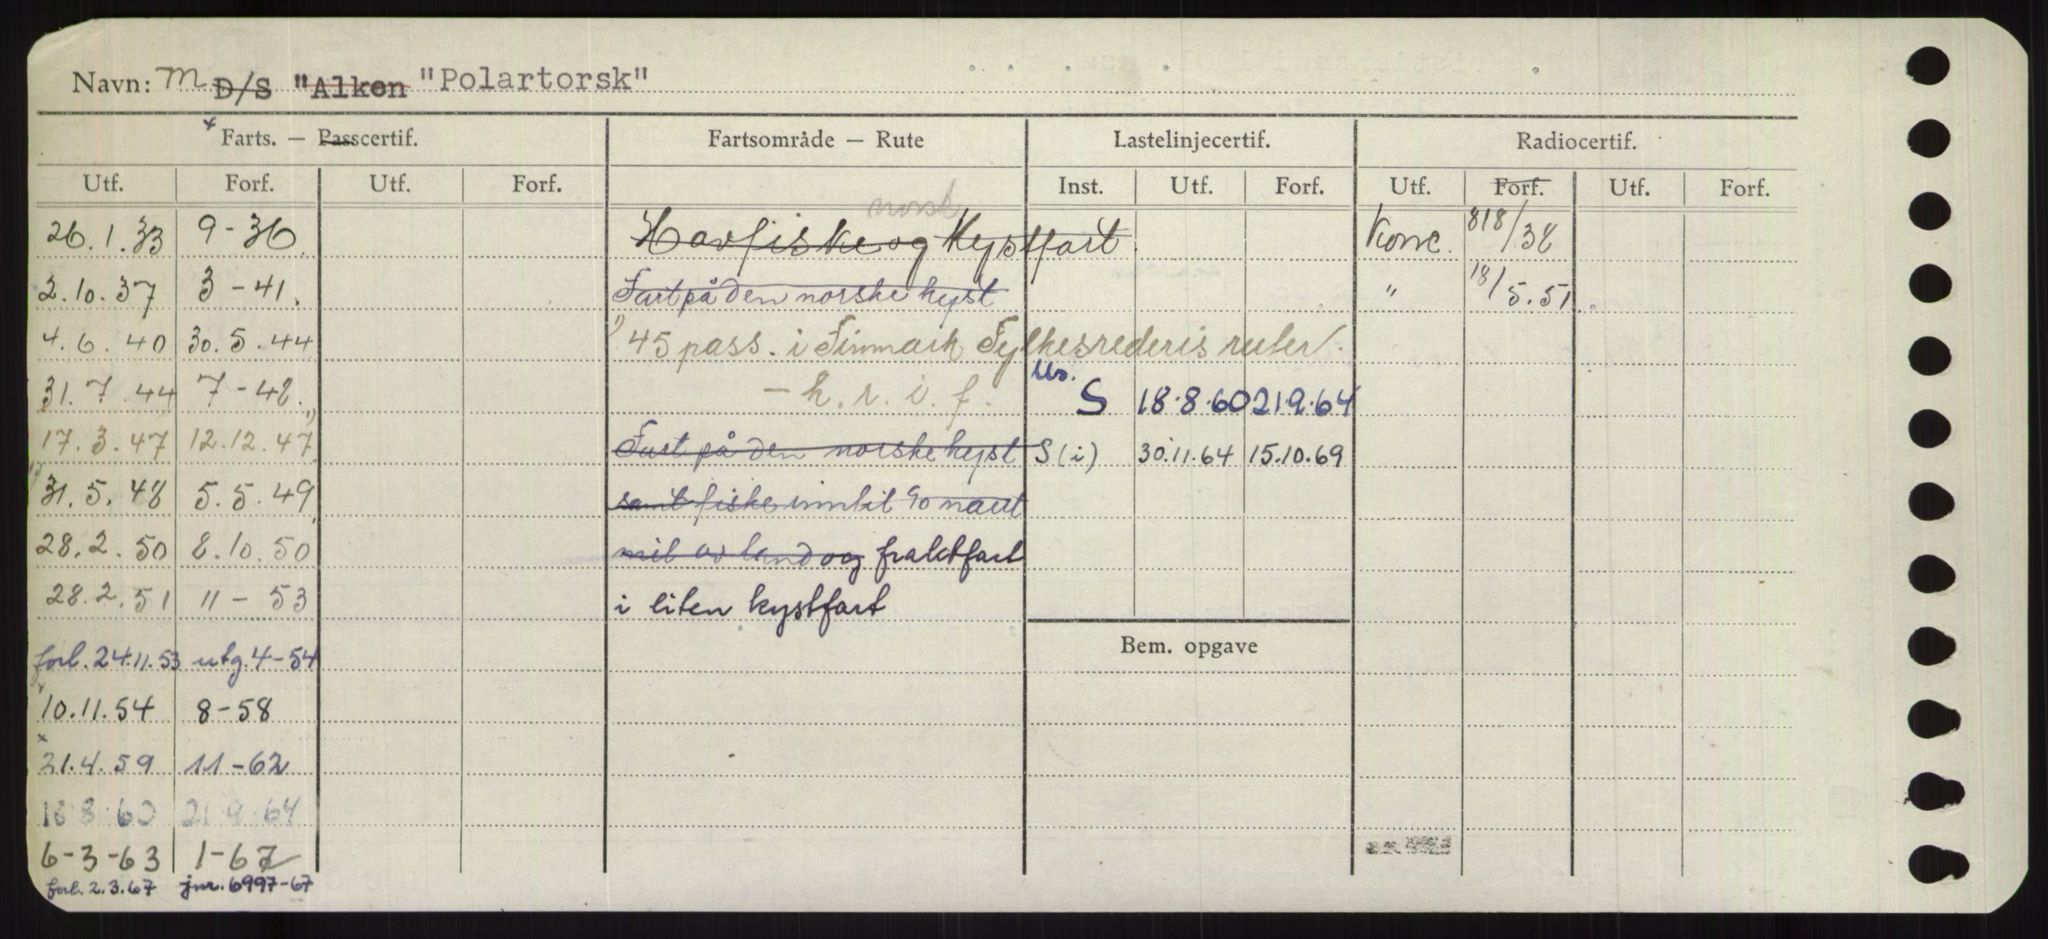 Navn: M D/S "Alken "Polartorsk"
x Farts. — Passcertif. Fartsområde — Rute Lastelinjecertif. Radiocertif.
Utf. Forf. Utf. Forf. Inst. Utf. Forf. Utf. Forf. Utf. Forf.
norsk
26.1.33 9-36. Havfiske og Kystfart. Konc. 818/38
2.10.37 3-41. Fart på den norske kyst " 18/5.51
4.6.40 30.5.44 1) 45 pass. i Finmark Fylkesrederis ruter.
31.7.44 7-48. - h.r.i.f. S 18.8.60 21.9.64
17.3.47 12.12.47 1) Fart på den norske kyst S(i) 30.11.64 15.10.69
31.5.48 5.5.49 samt fiske inntil 90 naut
28.2.50 8.10.50 mil av land og fraktfart
28.2.51 11-53 i liten kystfart
forl. 24.11.53 utg. 4-54 Bem. opgave
10.11.54 8-58
x
21.4.59 11-62
18.8.60 21.9.64
6-3-63 1-67
forl. 2.3.67 jnr. 6997-67